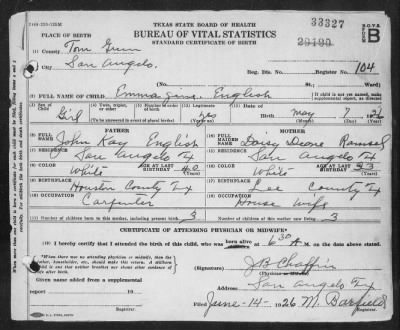 TEXAS STATE BOARD OF HEALTH
BUREAU OF VITAL STATISTICS
STANDARD CERTIFICATE OF BIRTH
33327
29190
B
PLACE OF BIRTH
(1) County Tom Green
City San Angelo.
Reg. Dis. No. Register No. 104
(No. St. Ward)
(2) FULL NAME OF CHILD Emma English
(3) Sex of Child Girl
(4) Twin, triplet, or other
(5) Number in order of birth
(To be answered in event of plural births)
(6) Legitimate yes
(7) Date of Birth May 7
FATHER
(8) FULL NAME John Kay English
RESIDENCE San Angelo Tx
COLOR White
AGE AT LAST BIRTHDAY
BIRTHPLACE Houston County Tx
OCCUPATION Carpenter
MOTHER
FULL MAIDEN NAME Daisy
RESIDENCE San Angelo Tx
COLOR White
AGE AT LAST BIRTHDAY
BIRTHPLACE Lee County Tx
OCCUPATION House wife
Number of children born to this mother, including present birth 3
Number of children of this mother now living 3
CERTIFICATE OF ATTENDING PHYSICIAN OR MIDWIFE
I hereby certify that I attended the birth of this child, who was born alive at 6 30 A M. on the date above stated.
(Signature) J B Chaffin
San Angelo Tx
Given name added from a supplemental
report 19
Registrar.
Filed June-14- 1926 M. Barfield
Registrar.